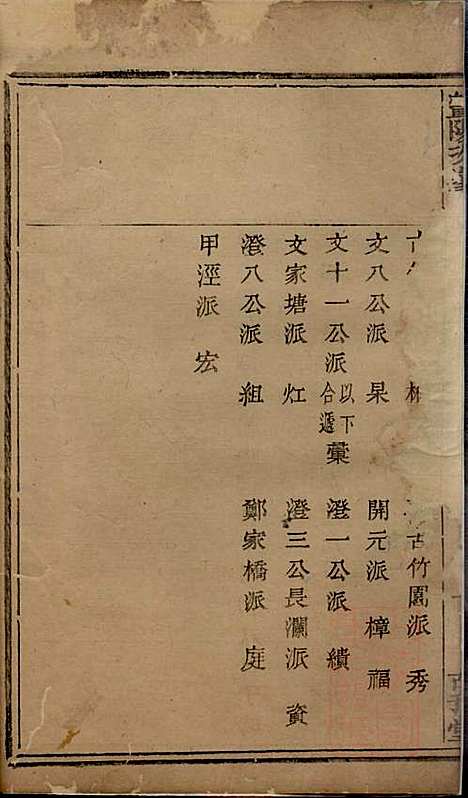 古竹園派 秀
文八公派 杲
開元派 樟福
文十一公派 以下合遞 彙
澄一公派 績
文家塘派 灴
澄三公長瀾派 資
澄八公派 組
鄭家橋派 庭
甲涇派 宏